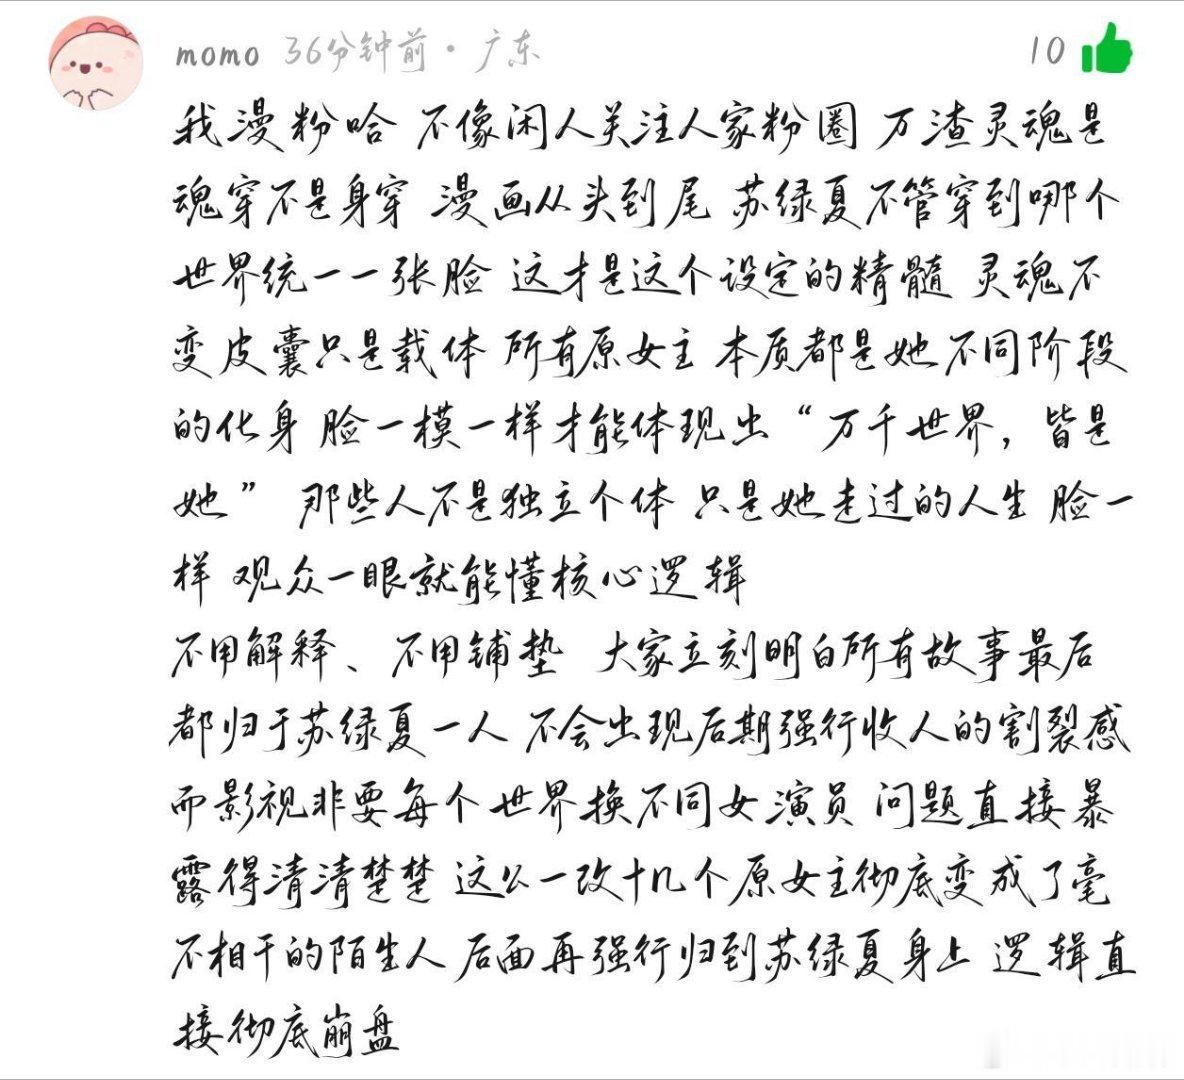 momo 36分钟前·广东 10
我漫粉哈 不像闲人关注人家粉圈 万渣灵魂是
魂穿不是身穿 漫画从头到尾 苏绿夏不管穿到哪个
世界统一一张脸 这才是这个设定的精髓 灵魂不
变皮囊只是载体 所有原女主 本质都是她不同阶段
的化身 脸一模一样才能体现出“万千世界，皆是
她” 那些人不是独立个体 只是她走过的人生 脸一
样 观众一眼就能懂核心逻辑
不用解释、不用铺垫 大家立刻明白所有故事最后
都归于苏绿夏一人 不会出现后期强行收人的割裂感
而影视非要每个世界换不同女演员 问题直接暴
露得清清楚楚 这么一改十几个原女主彻底变成了毫
不相干的陌生人 后面再强行归到苏绿夏身上 逻辑直
接彻底崩盘